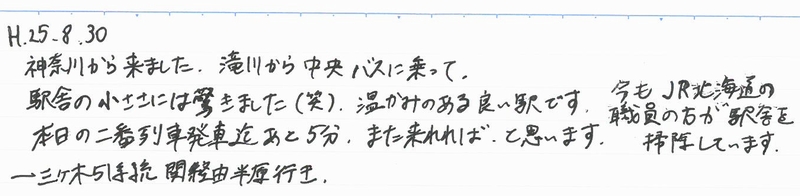 H.25.8.30
神奈川から来ました。滝川から中央バスに乗って。
駅舎の小ささには驚きました(笑)。温かみのある良い駅です。
本日の二番列車発車迄あと5分。また来れれば。と思います。
今もJR北海道の
職員の方が駅舎を
掃除しています。
→三ケ木51系統 関経由半原行き。